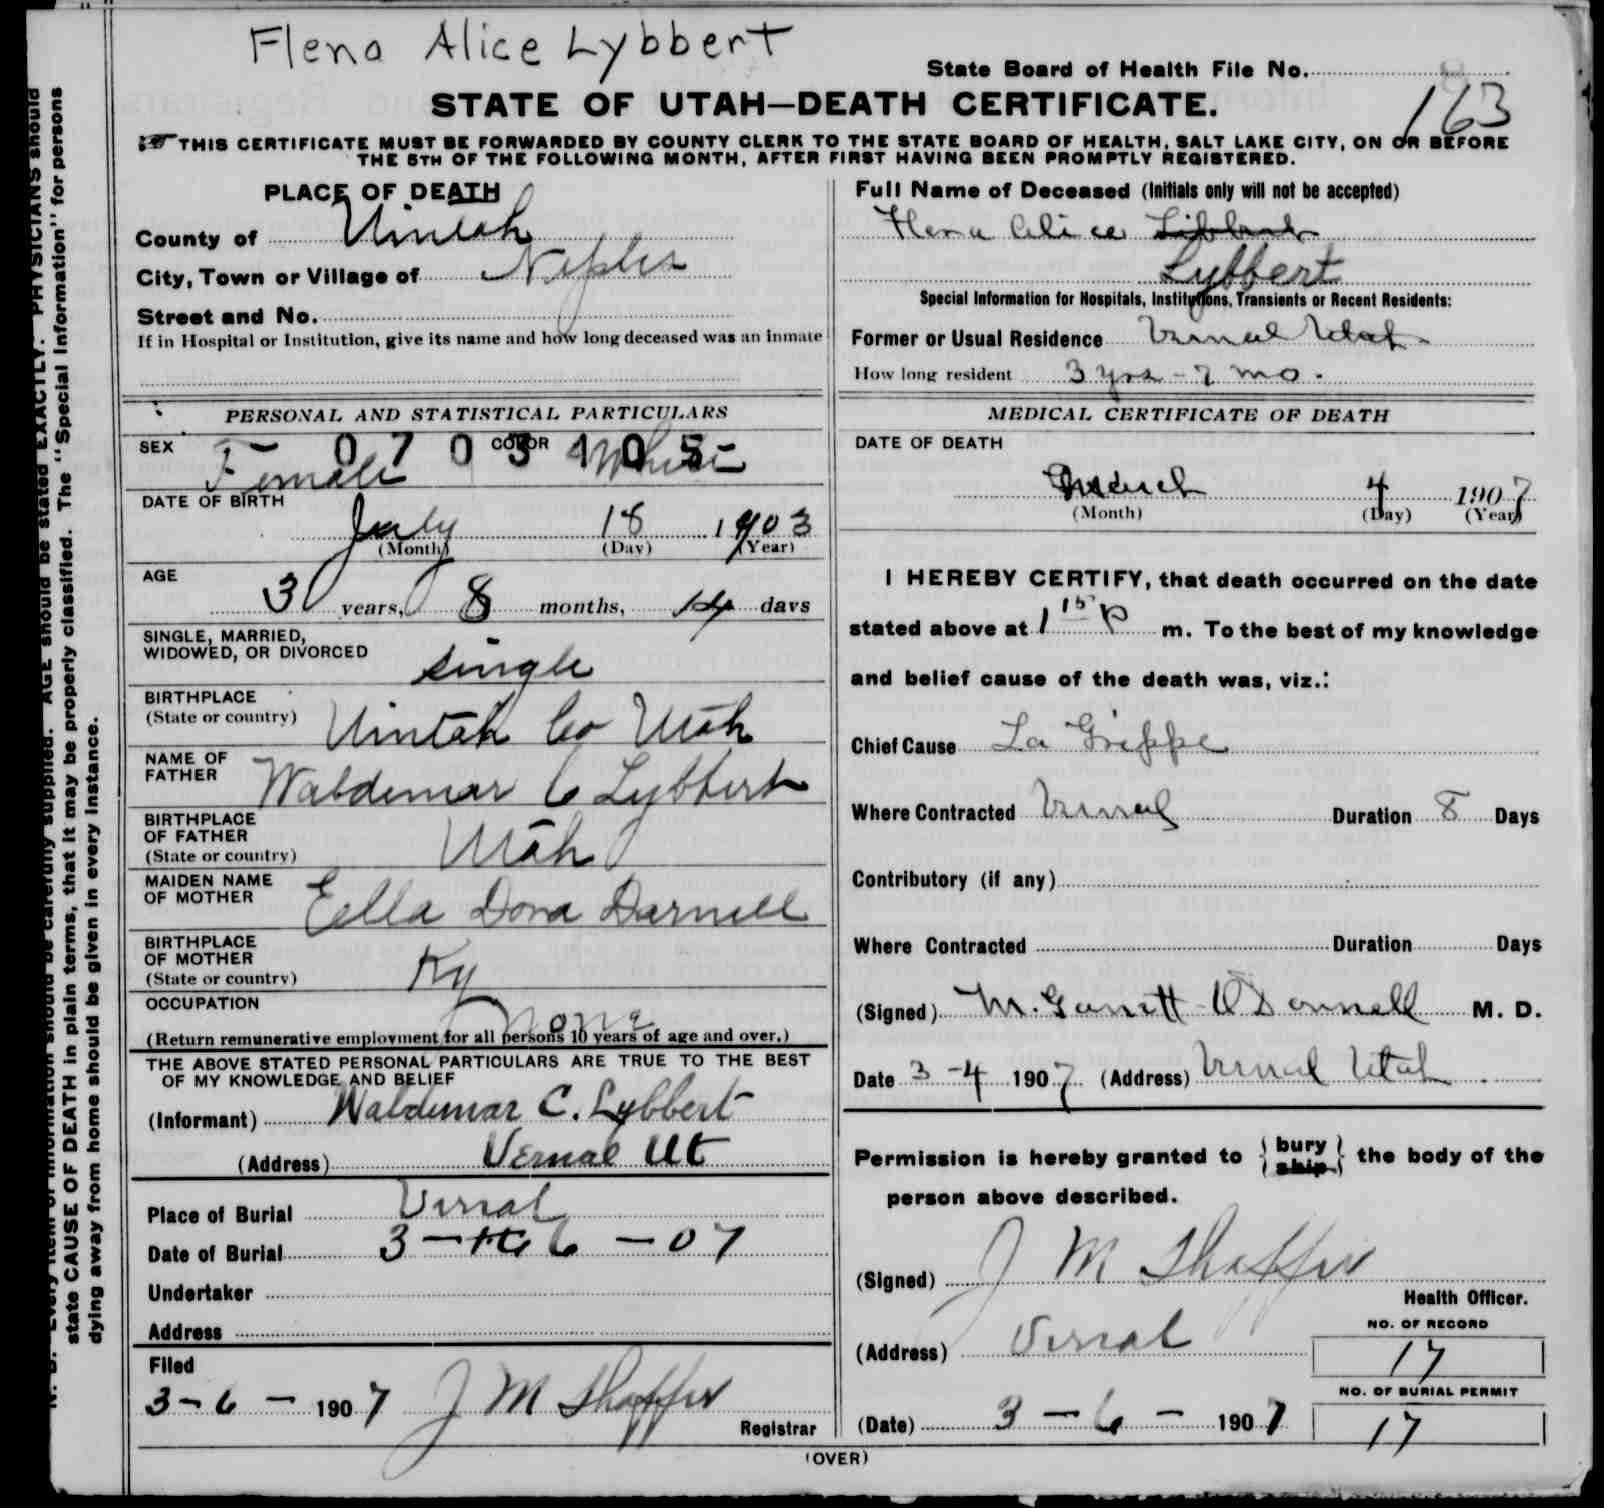 Flena Alice Lybbert
State Board of Health File No.
163
STATE OF UTAH—DEATH CERTIFICATE.
THIS CERTIFICATE MUST BE FORWARDED BY COUNTY CLERK TO THE STATE BOARD OF HEALTH, SALT LAKE CITY, ON OR BEFORE
THE 5TH OF THE FOLLOWING MONTH, AFTER FIRST HAVING BEEN PROMPTLY REGISTERED.
PLACE OF DEATH
County of Uintah
City, Town or Village of Naples
Street and No.
If in Hospital or Institution, give its name and how long deceased was an inmate
PERSONAL AND STATISTICAL PARTICULARS
0703105
SEX Female COLOR White
DATE OF BIRTH
July 18 1903
(Month) (Day) (Year)
AGE
3 years, 8 months, 14 days
SINGLE, MARRIED,
WIDOWED, OR DIVORCED single
BIRTHPLACE
(State or country) Uintah Co Utah
NAME OF
FATHER Waldemar C Lybbert
BIRTHPLACE
OF FATHER
(State or country) Utah
MAIDEN NAME
OF MOTHER Ella Dona Darnell
BIRTHPLACE
OF MOTHER
(State or country) Ky
OCCUPATION
None
(Return remunerative employment for all persons 10 years of age and over.)
THE ABOVE STATED PERSONAL PARTICULARS ARE TRUE TO THE BEST
OF MY KNOWLEDGE AND BELIEF
(Informant) Waldemar C. Lybbert
(Address) Vernal Ut
Place of Burial Vernal
Date of Burial 3 - 6 - 07
Undertaker
Address
Filed
3-6- 1907 J M Shaffer
Registrar
Full Name of Deceased (Initials only will not be accepted)
Flena Alice Libbert
Lybbert
Special Information for Hospitals, Institutions, Transients or Recent Residents:
Former or Usual Residence Vernal Utah
How long resident 3 yrs - 7 mo.
MEDICAL CERTIFICATE OF DEATH
DATE OF DEATH
March 4 1907
(Month) (Day) (Year)
I HEREBY CERTIFY, that death occurred on the date
stated above at 1 15 P m. To the best of my knowledge
and belief cause of the death was, viz.:
Chief Cause La Grippe
Where Contracted Vernal Duration 8 Days
Contributory (if any)
Where Contracted Duration Days
(Signed) M. Garrett O'Donnell M. D.
Date 3-4 1907. (Address) Vernal Utah
Permission is hereby granted to {bury ship} the body of the
person above described.
(Signed) J M Shaffer
Health Officer.
(Address) Vernal
NO. OF RECORD
17
NO. OF BURIAL PERMIT
17
(Date) 3 - 6 - 1907
(OVER)
PHYSICIANS should
state CAUSE OF DEATH in plain terms, that it may be properly classified. The "Special Information" for persons
dying away from home should be given in every instance.